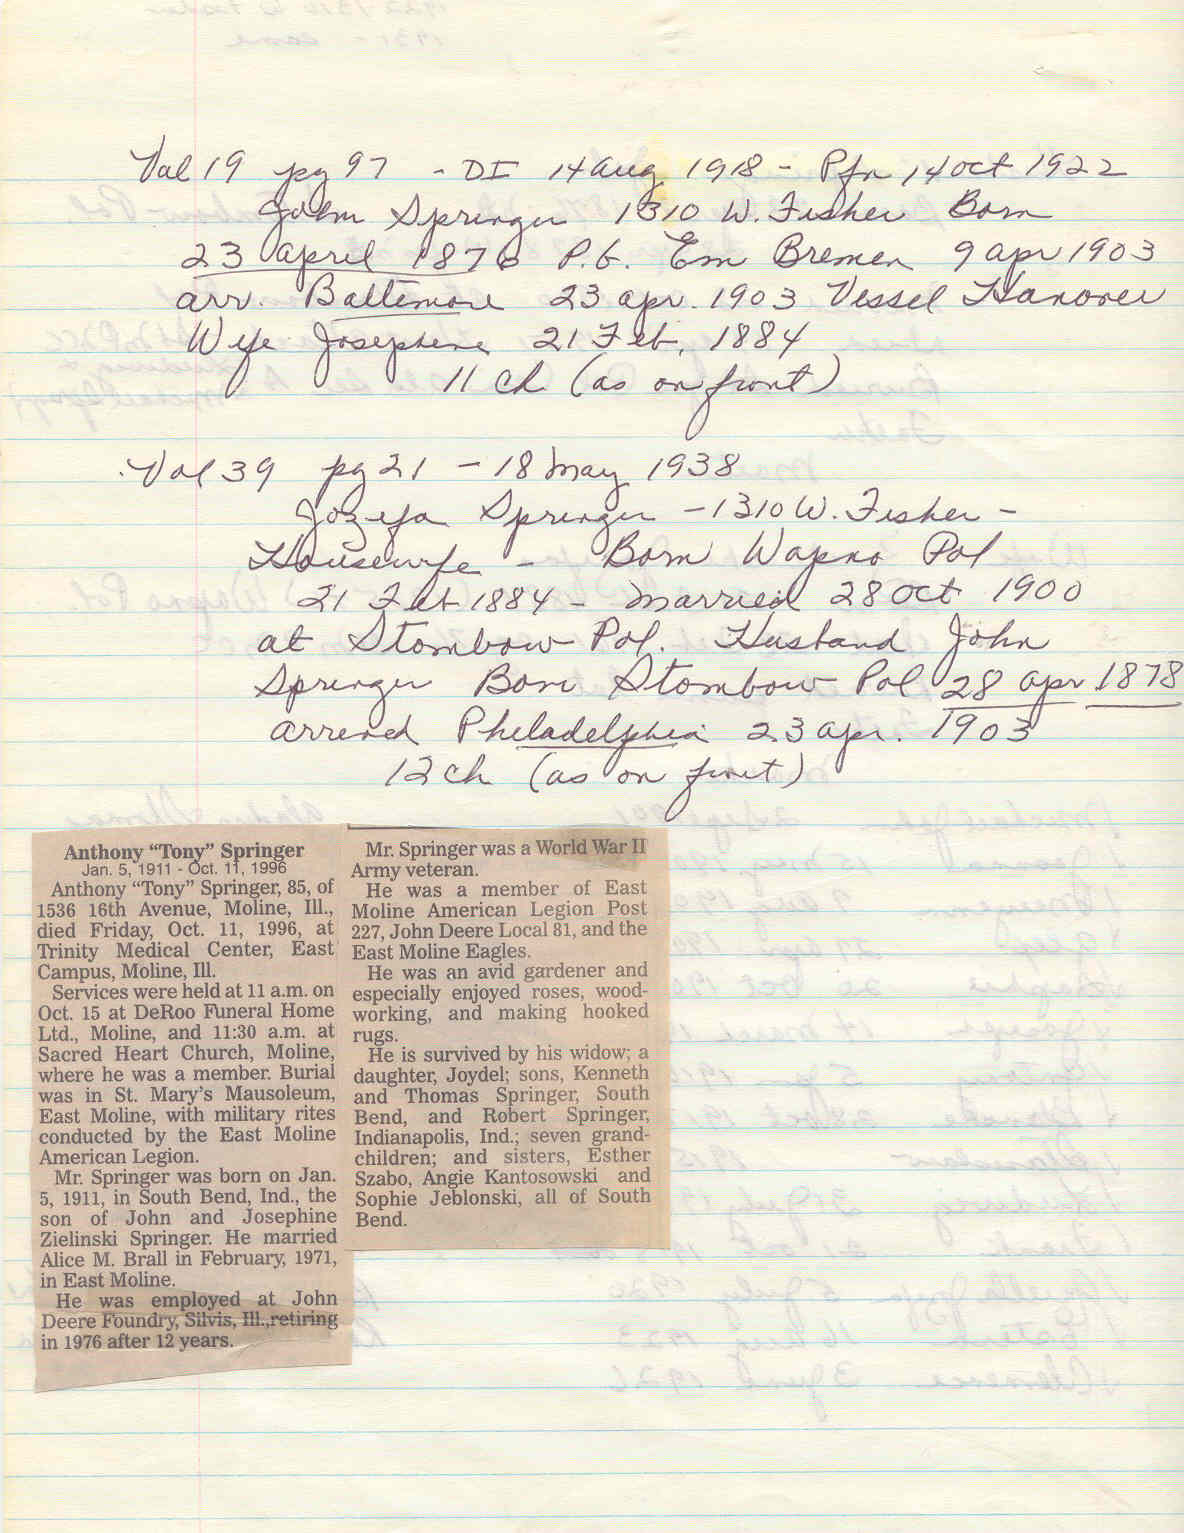 Vol 19 pg 97 - DI 14 Aug 1918 - Ptn 14 Oct 1922
John Springer 1310 W. Fisher Born
23 April 1876 P.G. Em Bremen 9 Apr 1903
arr. Baltimore 23 Apr. 1903 Vessel Hanover
Wife Josephine 21 Feb, 1884
11 ch (as on front)
Vol 39 pg 21 - 18 May 1938
Jozefa Springer - 1310 W. Fisher -
Housewife - Born Wapno Pol
21 Feb 1884 - Married 28 Oct 1900
at Stombow Pol. Husband John
Springer Born Stombow Pol 28 Apr 1878
arrived Philadelphia 23 Apr. 1903
12 ch (as on front)
Anthony “Tony” Springer
Jan. 5, 1911 - Oct. 11, 1996
Anthony “Tony” Springer, 85, of
1536 16th Avenue, Moline, Ill.,
died Friday, Oct. 11, 1996, at
Trinity Medical Center, East
Campus, Moline, Ill.
Services were held at 11 a.m. on
Oct. 15 at DeRoo Funeral Home
Ltd., Moline, and 11:30 a.m. at
Sacred Heart Church, Moline,
where he was a member. Burial
was in St. Mary’s Mausoleum,
East Moline, with military rites
conducted by the East Moline
American Legion.
Mr. Springer was born on Jan.
5, 1911, in South Bend, Ind., the
son of John and Josephine
Zielinski Springer. He married
Alice M. Brall in February, 1971,
in East Moline.
He was employed at John
Deere Foundry, Silvis, Ill.,retiring
in 1976 after 12 years.
Mr. Springer was a World War II
Army veteran.
He was a member of East
Moline American Legion Post
227, John Deere Local 81, and the
East Moline Eagles.
He was an avid gardener and
especially enjoyed roses, wood-
working, and making hooked
rugs.
He is survived by his widow; a
daughter, Joydel; sons, Kenneth
and Thomas Springer, South
Bend, and Robert Springer,
Indianapolis, Ind.; seven grand-
children; and sisters, Esther
Szabo, Angie Kantosowski and
Sophie Jeblonski, all of South
Bend.